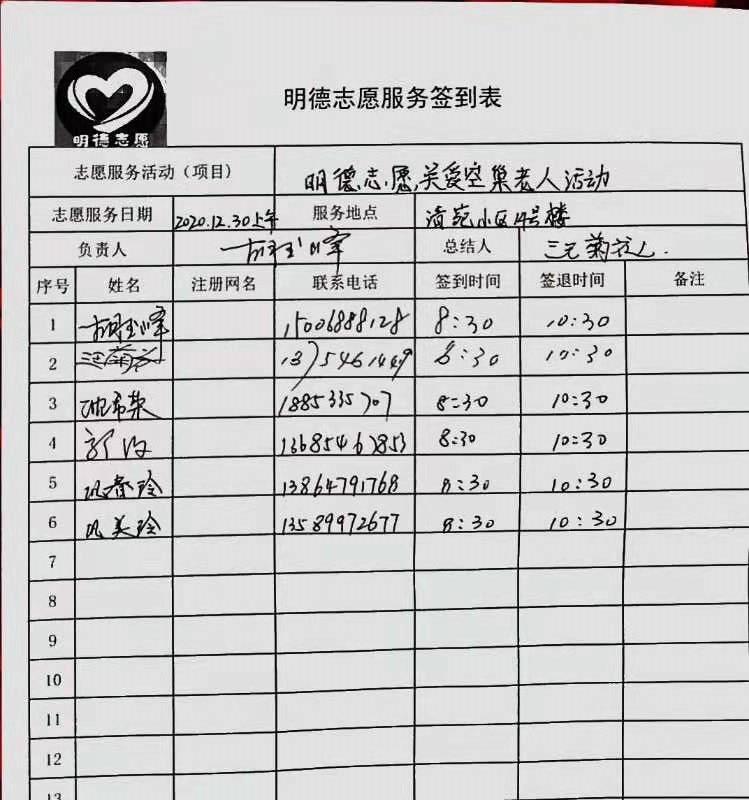 明德志愿
明德志愿服务签到表
志愿服务活动（项目） 明德志愿关爱空巢老人活动
志愿服务日期 2020.12.30上午 服务地点 清苑小区4号楼
负责人 总结人
序号 姓名 注册网名 联系电话 签到时间 签退时间 备注
1 15006888128 8:30 10:30
2 8:30 10:30
3 8:30 10:30
4 13685467853 8:30 10:30
5 巩春玲 13864791768 8:30 10:30
6 巩美玲 13589972677 8:30 10:30
7
8
9
10
11
12
13